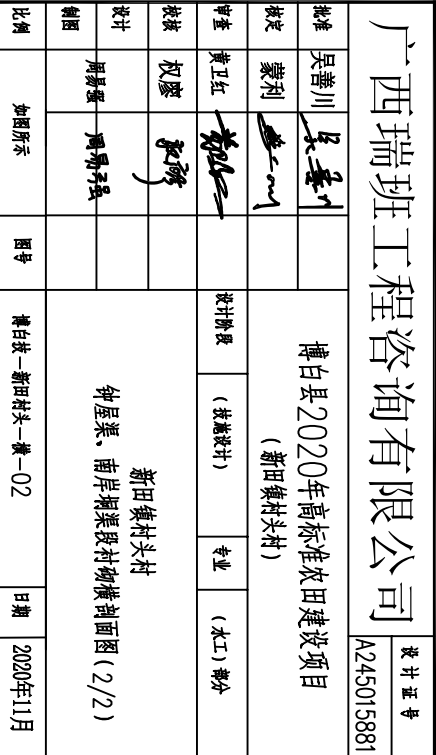 广西瑞班工程咨询有限公司
设计证号
A245015881
批准 吴善川
核定 蒙利
审查 黄卫红
校核 权廖
设计
制图 周易强 周易强
比例 如图所示
博白县2020年高标准农田建设项目
(新田镇村头村)
设计阶段 (技施设计) 专业 (水工)部分
新田镇村头村
钟屋渠、南岸垌渠段衬砌横剖面图(2/2)
图号 博白技—新田村头—横—02
日期 2020年11月